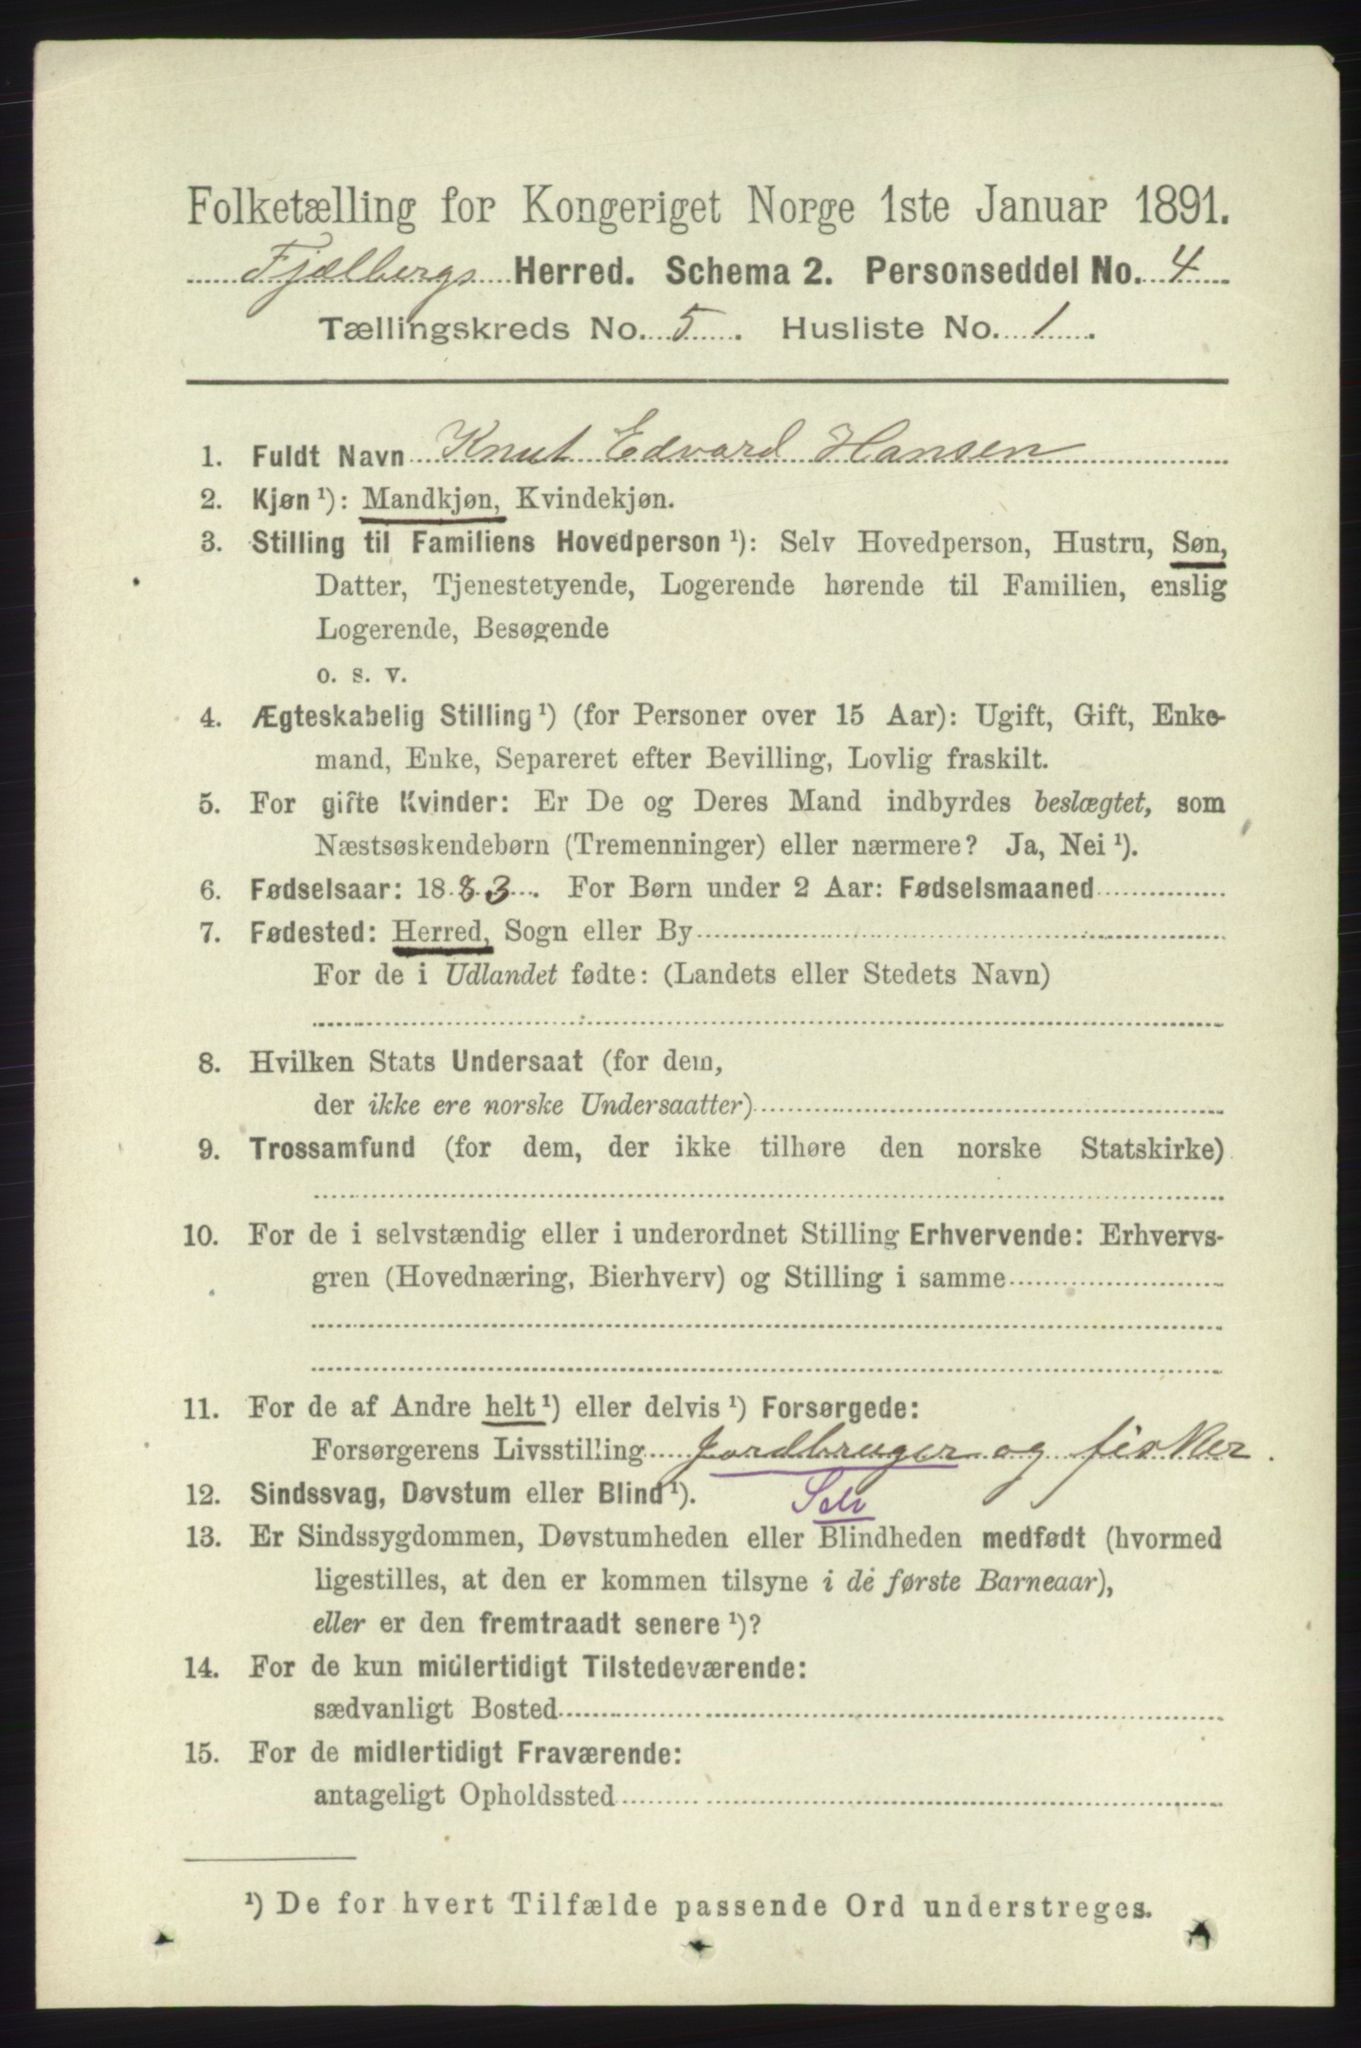 Folketælling for Kongeriget Norge 1ste Januar 1891.
Fjælbergs Herred. Schema 2. Personseddel No. 4
Tællingskreds No. 5. Husliste No. 1.
1. Fuldt Navn Knut Edvard Hansen
2. Kjøn ¹): Mandkjøn, Kvindekjøn.
3. Stilling til Familiens Hovedperson ¹): Selv Hovedperson, Hustru, Søn,
Datter, Tjenestetyende, Logerende hørende til Familien, enslig
Logerende, Besøgende
o. s. v.
4. Ægteskabelig Stilling ¹) (for Personer over 15 Aar): Ugift, Gift, Enke-
mand, Enke, Separeret efter Bevilling, Lovlig fraskilt.
5. For gifte Kvinder: Er De og Deres Mand indbyrdes beslægtet, som
Næstsøskendebørn (Tremenninger) eller nærmere? Ja, Nei ¹).
6. Fødselsaar: 1883. For Børn under 2 Aar: Fødselsmaaned
7. Fødested: Herred, Sogn eller By
For de i Udlandet fødte: (Landets eller Stedets Navn)
8. Hvilken Stats Undersaat (for dem,
der ikke ere norske Undersaatter)
9. Trossamfund (for dem, der ikke tilhøre den norske Statskirke)
10. For de i selvstændig eller i underordnet Stilling Erhvervende: Erhvervs-
gren (Hovednæring, Bierhverv) og Stilling i samme
11. For de af Andre helt ¹) eller delvis ¹) Forsørgede:
Forsørgerens Livsstilling Jordbruger og fisker.
12. Sindssvag, Døvstum eller Blind ¹). Selv
13. Er Sindssygdommen, Døvstumheden eller Blindheden medfødt (hvormed
ligestilles, at den er kommen tilsyne i de første Barneaar),
eller er den fremtraadt senere ¹)?
14. For de kun midlertidigt Tilstedeværende:
sædvanligt Bosted
15. For de midlertidigt Fraværende:
antageligt Opholdssted
¹) De for hvert Tilfælde passende Ord understreges.